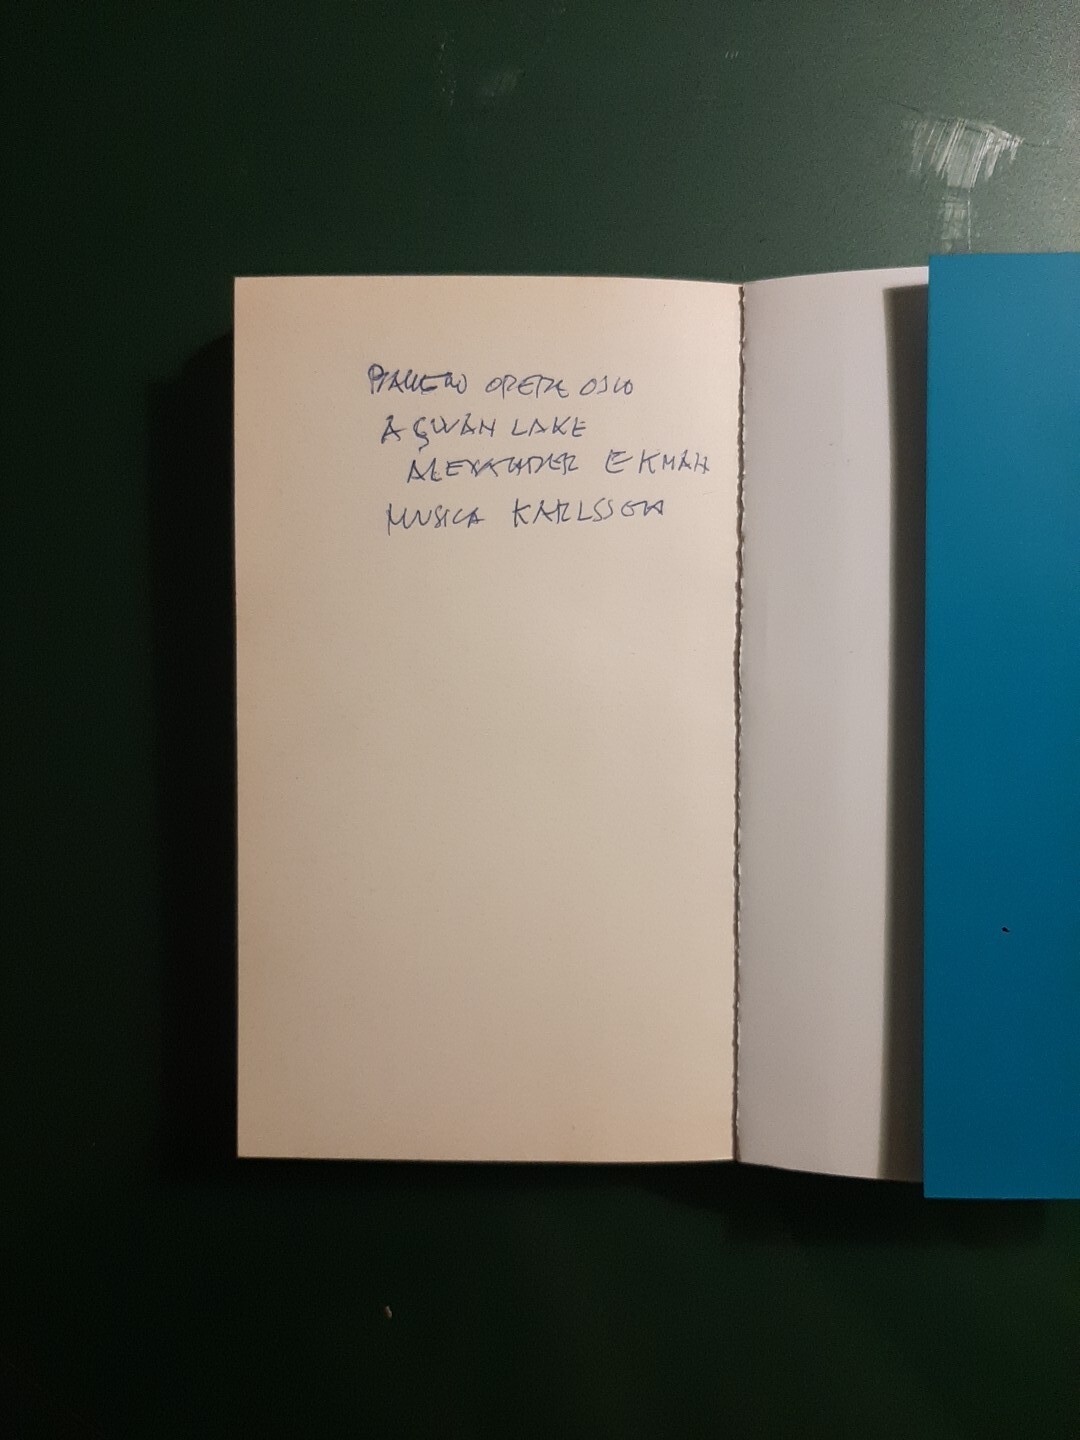 OPERA OSLO
A SWAN LAKE
ALEXANDER EKMAN
MUSICA KARLSSON